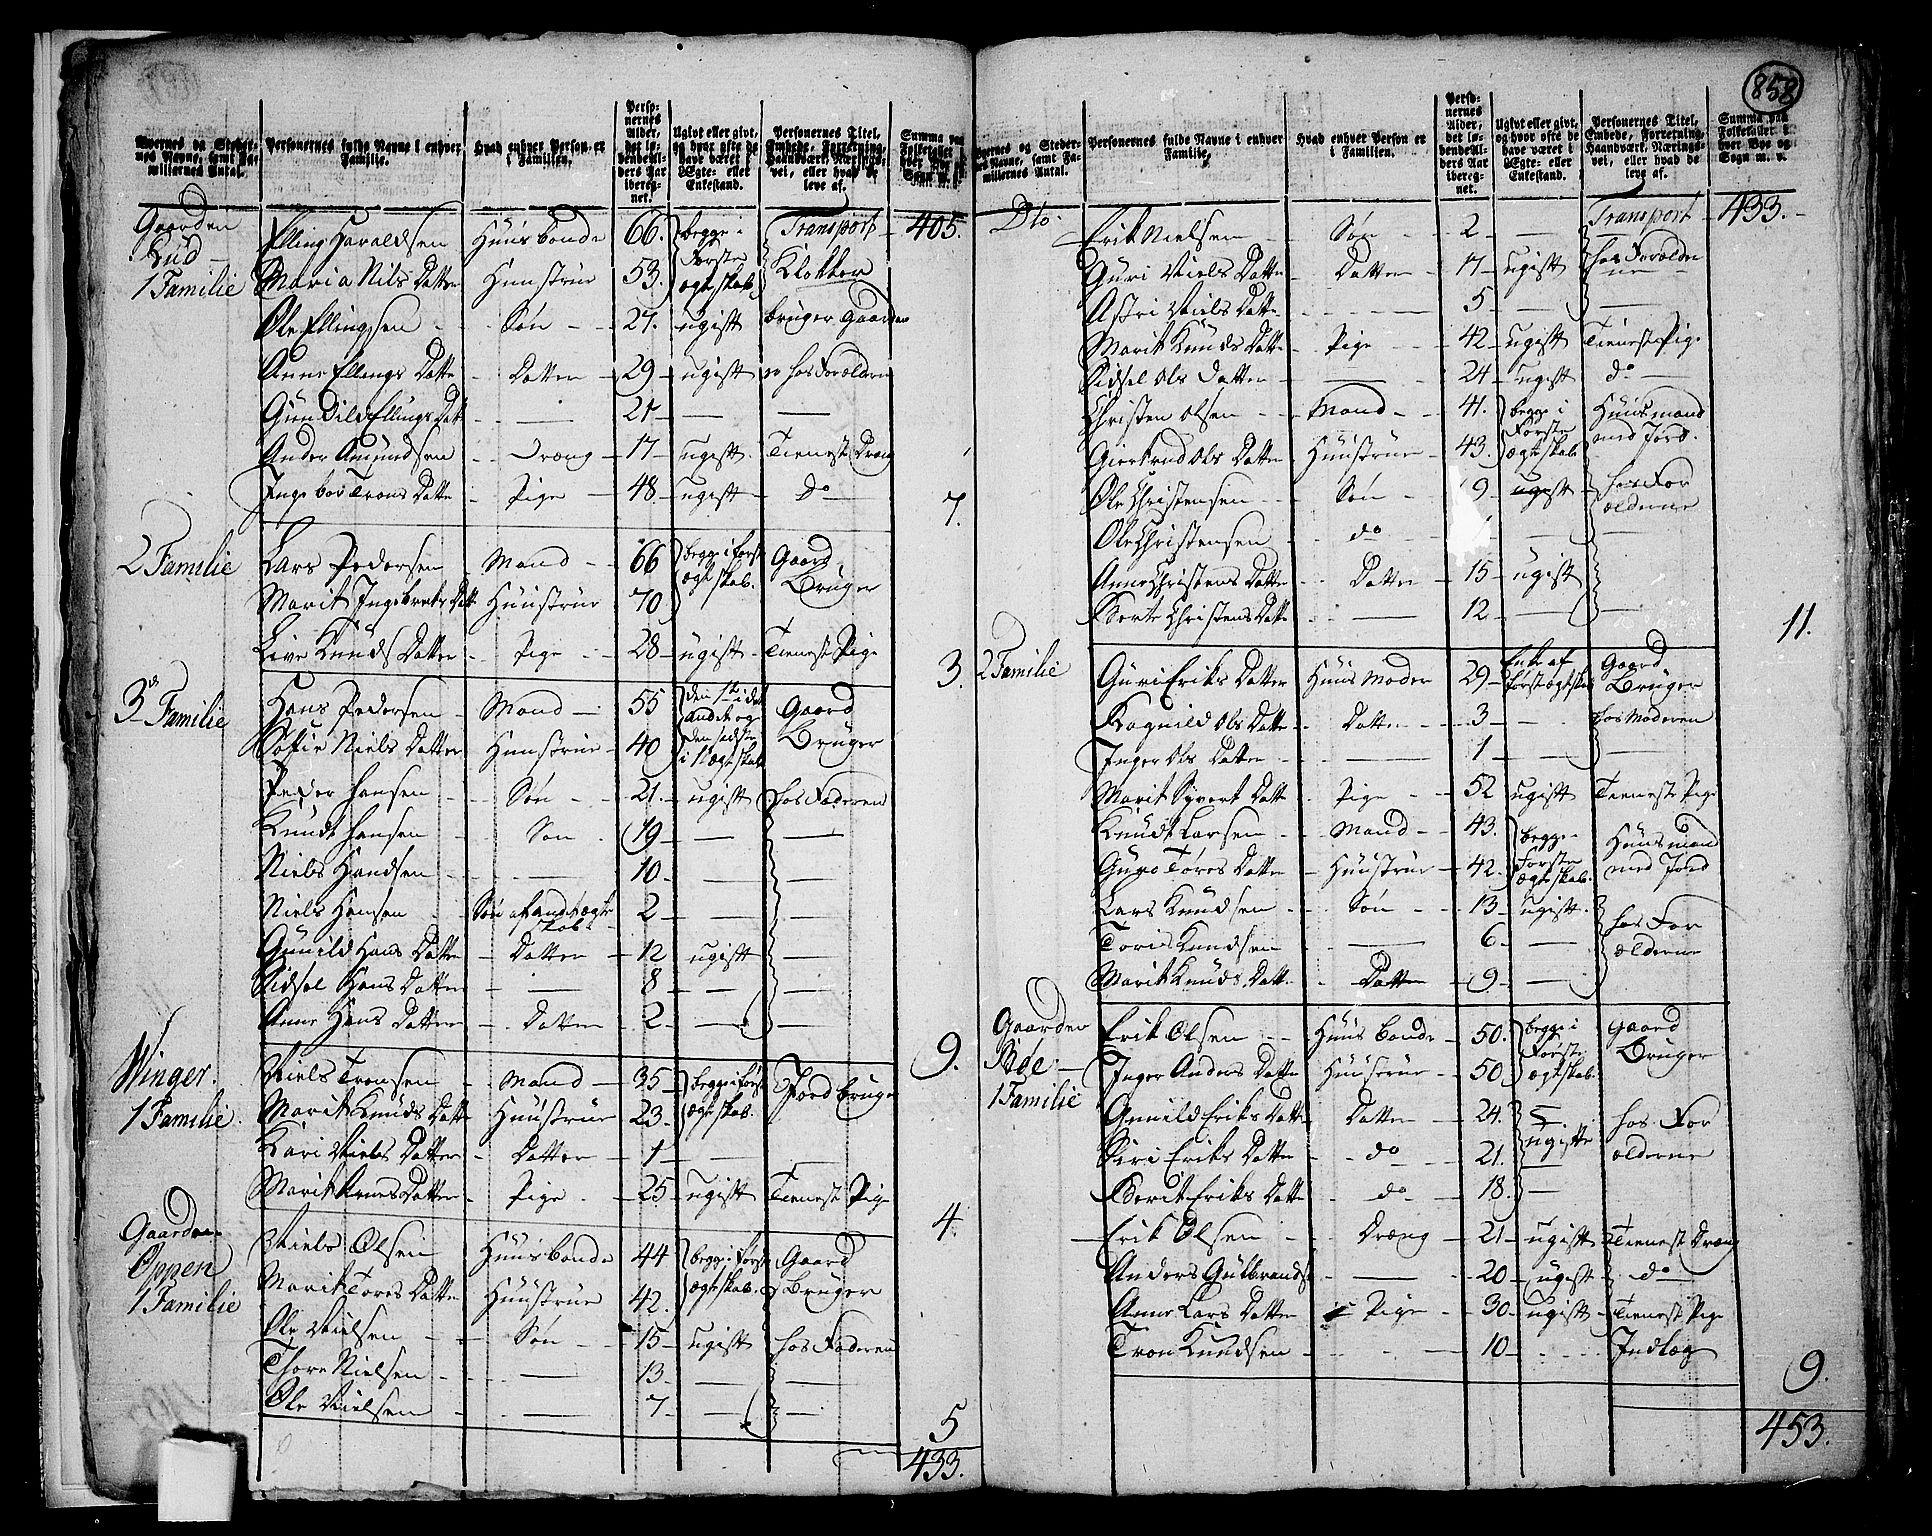 858
Byernes og Stedernes Navne, samt Familiernes Antal.
Personernes fulde Navne i enhver Familie.
Hvad enhver Person er i Familien.
Personernes Alder, det løbende Alders Aar iberegnet.
Ugivt eller givt, og hvor ofte de have været i Ægte- eller Enkestand.
Personernes Titel, Embede, Forretning, Haandværk, Næringsvei, eller hvad de leve af.
Summa paa Folketallet i hver Bye og Sogn m. v.
Gaarden Rud 1 Familie
Transport 405.
Elling Haraldsen Huusbonde 66. begge i Første ægteskab Klokker
Maria Nils Datter Huustrue 53.
Ole Ellingsen Søn 27. ugift bruger Gaarden
Anne Ellings Datter Datter 29 ugift er hos Forældrene
Gunbild Ellings Datt — 21 — —
Ander Amundsen Dreng 17 ugift Tienest Dreng
Ingebor Trons Datter Pige 48. ugift Do 7.
2 Familie
Lars Pedersen Mand 66 begge i først ægteskab. Gaard Bruger
Marit Ingebrets Datt Huustrue 70
Live Knuds Datter Pige 28 ugift Tienest Pige 3.
3de Familie
Hans Pedersen Mand 55 den 1te i det andet og den sidste i 1t ægteskab Gaard Bruger
Sofie Niels Datter Huustrue 40
Peder Hansen Søn 21. ugift hos Faderen
Knudt Hansen Søn 19 — —
Niels Handsen — 10 — —
Niels Hansen Søn af andet ægteskab 2 — —
Gunild Hans Datter Datter 12 ugift —
Sidsel Hans Datter — 8 — —
Anne Hans Datter Datter 2 — — 9.
Winger. 1 Familie.
Niels Tronsen Mand 35 begge i først ægteskab. Jord bruger
Marit Knuds Datter Huustrue 23.
Kari Niels Datter Datter 1 — —
Marit Arnes Datter Pige 25 ugift Tienest Pige 4.
Gaarden Oppen 1 Familie
Niels Olsen Huusbonde 44 begge i først ægteskab. Gaard Bruger
Marit Tores Datter Huustrue 42.
Ole Nielsen Søn 15 ugift hos Faderen
Thore Nielsen — 13 — —
Ole Nielsen — 7 — — 5
433.
Byernes og Stedernes Navne, samt Familiernes Antal.
Personernes fulde Navne i enhver Familie.
Hvad enhver Person er i Familien.
Personernes Alder, det løbende Alders Aar iberegnet.
Ugivt eller givt, og hvor ofte de have været i Ægte- eller Enkestand.
Personernes Titel, Embede, Forretning, Haandværk, Næringsvei, eller hvad de leve af.
Summa paa Folketallet i hver Bye og Sogn m. v.
Dto.
Transport 433.
Erik Nielsen Søn 2 — hos Forældrene
Guri Niels Datter Datter 17 ugift
Astri Niels Datter — 5 — —
Marit Knuds Datter Pige 42 ugift Tienest Pige
Sidsel Ols Datter — 24 ugift do
Christen Olsen Mand 41. begge i Første ægteskab Huusmand med Jord.
Giertrud Ols Datter Huustrue 43.
Ole Christensen Søn 9 ugift hos Forælderne
Ole Christensen do — —
Anne Christens Datter Datter 15 ugift
Berte Christens Datter — 12 — — 11.
2 Familie
Guri Eriks Datter Huus Moder 29 Enke af først ægteskab Gaard Bruger
Ragnild Ols Datter Datter 3 — hos Moderen
Inger Ols Datter — 1 — —
Marit Syvert Datter Pige 52 ugift Tienest Pige
Knudt Larsen Mand 43. begge Første ægteskab. Huusmand med Jord
Guro Tores Datter Huustrue 42.
Lars Knudsen Søn 13 ugift. hos Forælderne
Toris Knudsen — 6 —
Marit Knuds Datter Datter 9 —
Gaarden Bøe 1 Familie
Erik Olsen Huusbonde 50. begge i Første ægteskab. Gaard Bruger
Inger Anders Datter Huustrue 50
Gunild Eriks Datter Datter 24. ugifte hos Forælderne
Siri Eriks Datter do 21.
Berit Eriks Datter do 18. —
Erik Olsen Dræng 21 ugift Tienest Dræng
Anders Gulbrands — 20 ugift do
Anne Lars Datter Pige 30 ugift Tienest Pige
Tron Knudsen — 10 Indlæg 9.
453.